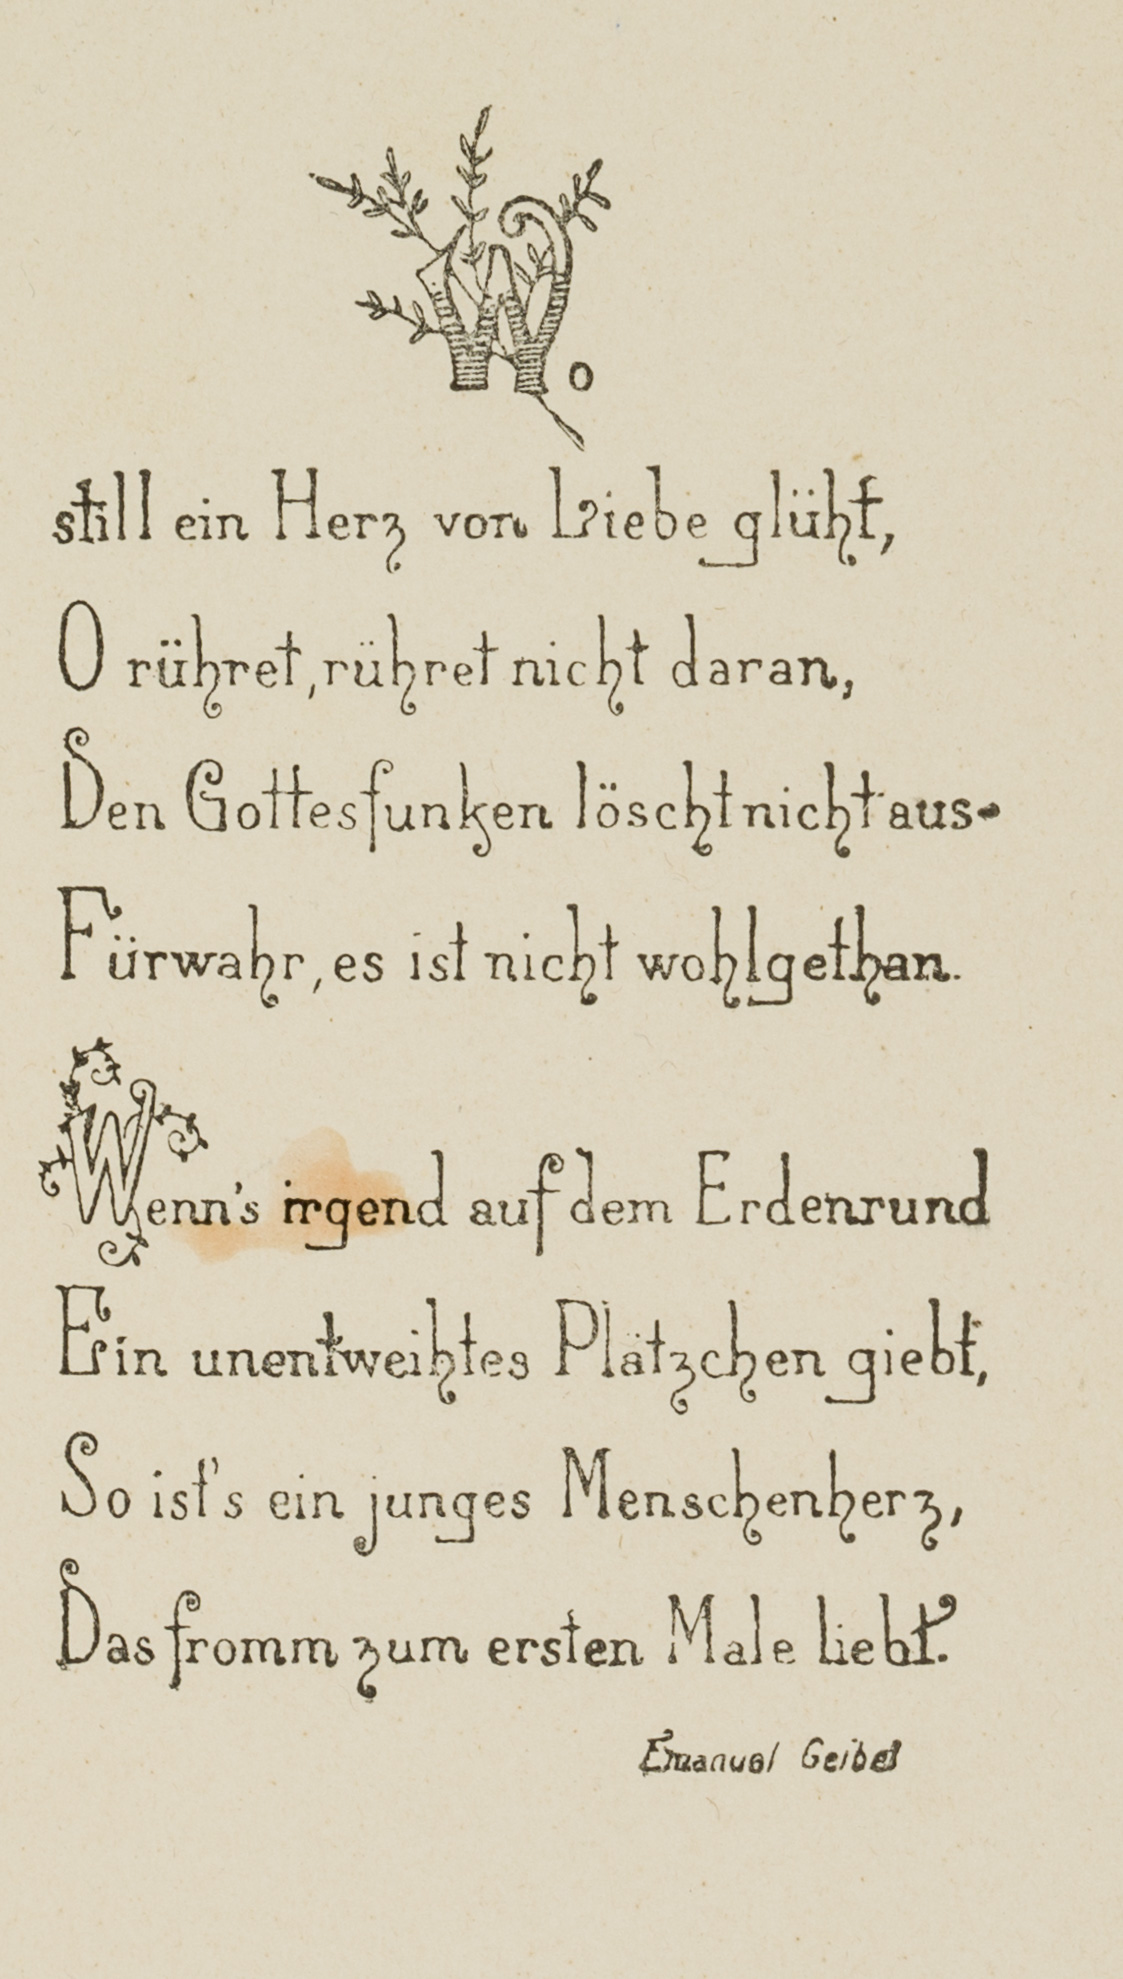 Wo
still ein Herz von Liebe glüht,
O rühret, rühret nicht daran,
Den Gottesfunken löscht nicht aus-
Fürwahr, es ist nicht wohlgethan.
Wenn's irgend auf dem Erdenrund
Ein unentweihtes Plätzchen giebt,
So ist's ein junges Menschenherz,
Das fromm zum ersten Male liebt.
Emanuel Geibel